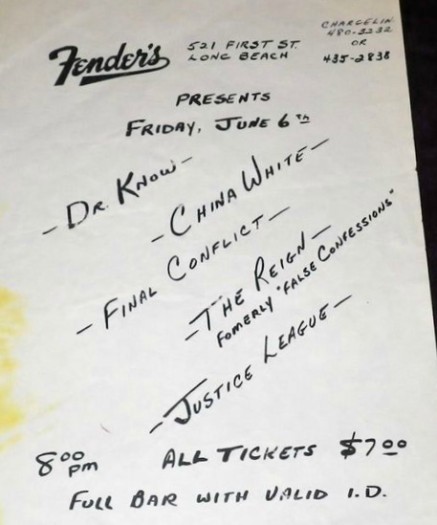 Fender's
521 FIRST ST.
LONG BEACH
CHARGELIN
480-3232
OR
435-2838
PRESENTS
FRIDAY, JUNE 6TH
- DR. KNOW -
- CHINA WHITE -
- FINAL CONFLICT -
- THE REIGN -
FOMERLY "FALSE CONFESSIONS"
- JUSTICE LEAGUE -
8:00 PM
ALL TICKETS $7.00
FULL BAR WITH VALID I.D.